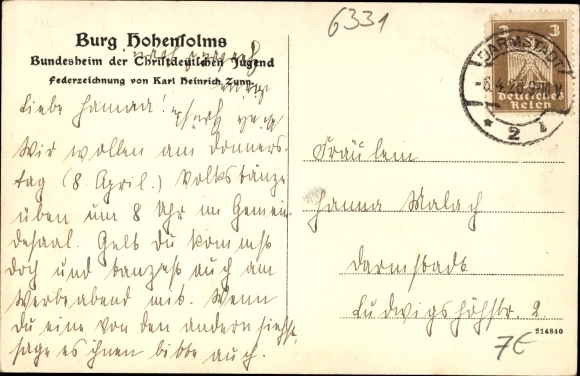 6331
Burg Hohensolms
Bundesheim der Christdeutschen Jugend
Federzeichnung von Karl Heinrich Zunn.
Liebe Hanna!
Wir wollen am Donners-
tag (8. April.) Volkstänze
üben um 8 Uhr im Gemein-
desaal. Gelt du kommst
doch und tanzest auch am
Werbeabend mit. Wenn
Du eine von den andern siehst,
sage es ihnen bitte auch.
3 3
Deutsches
Reich
DARMSTADT
-6.4.26.
* 2 i
Fräulein
Hanna Malach
Darmstadt
Ludwigshöhstr. 2.
214840
7€